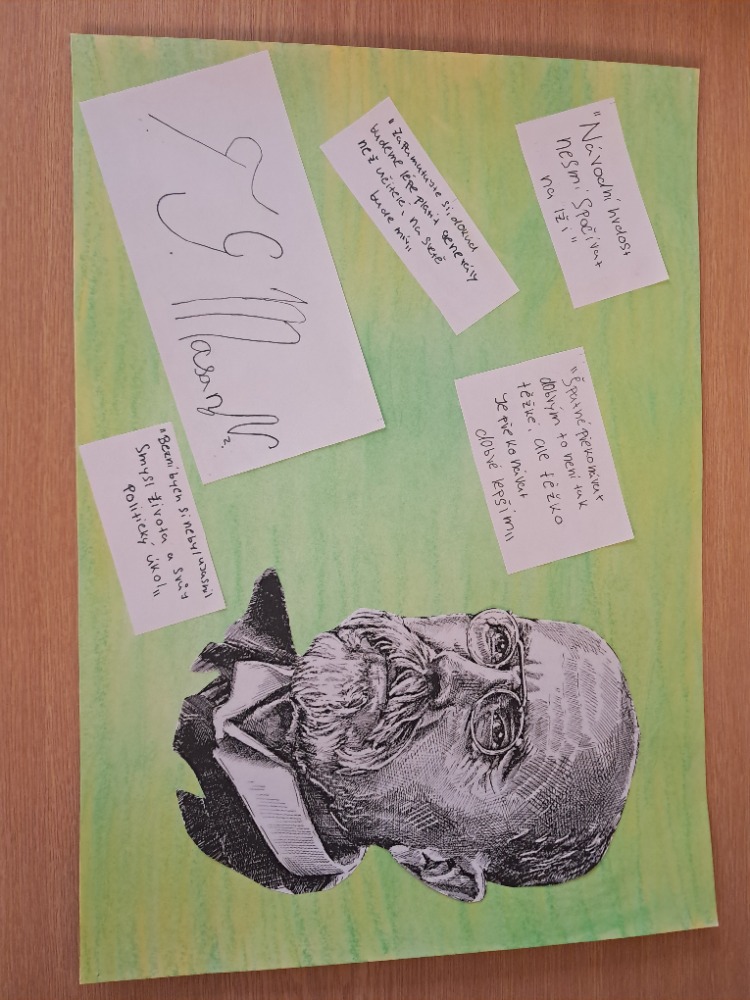 "Národní hrdost
nesmí spočívat
na lži"
"Špatné překonávat
dobrým to není tak
těžké, ale těžko
je překonávat
dobré lepším"
"Zapamatujte si, dokud
budeme lépe platit generály
než učitele, na světě
bude mír"
T G. Masaryk
"Bez ní bych si neby ujasnil
smysl života a svůj
politický úkol"